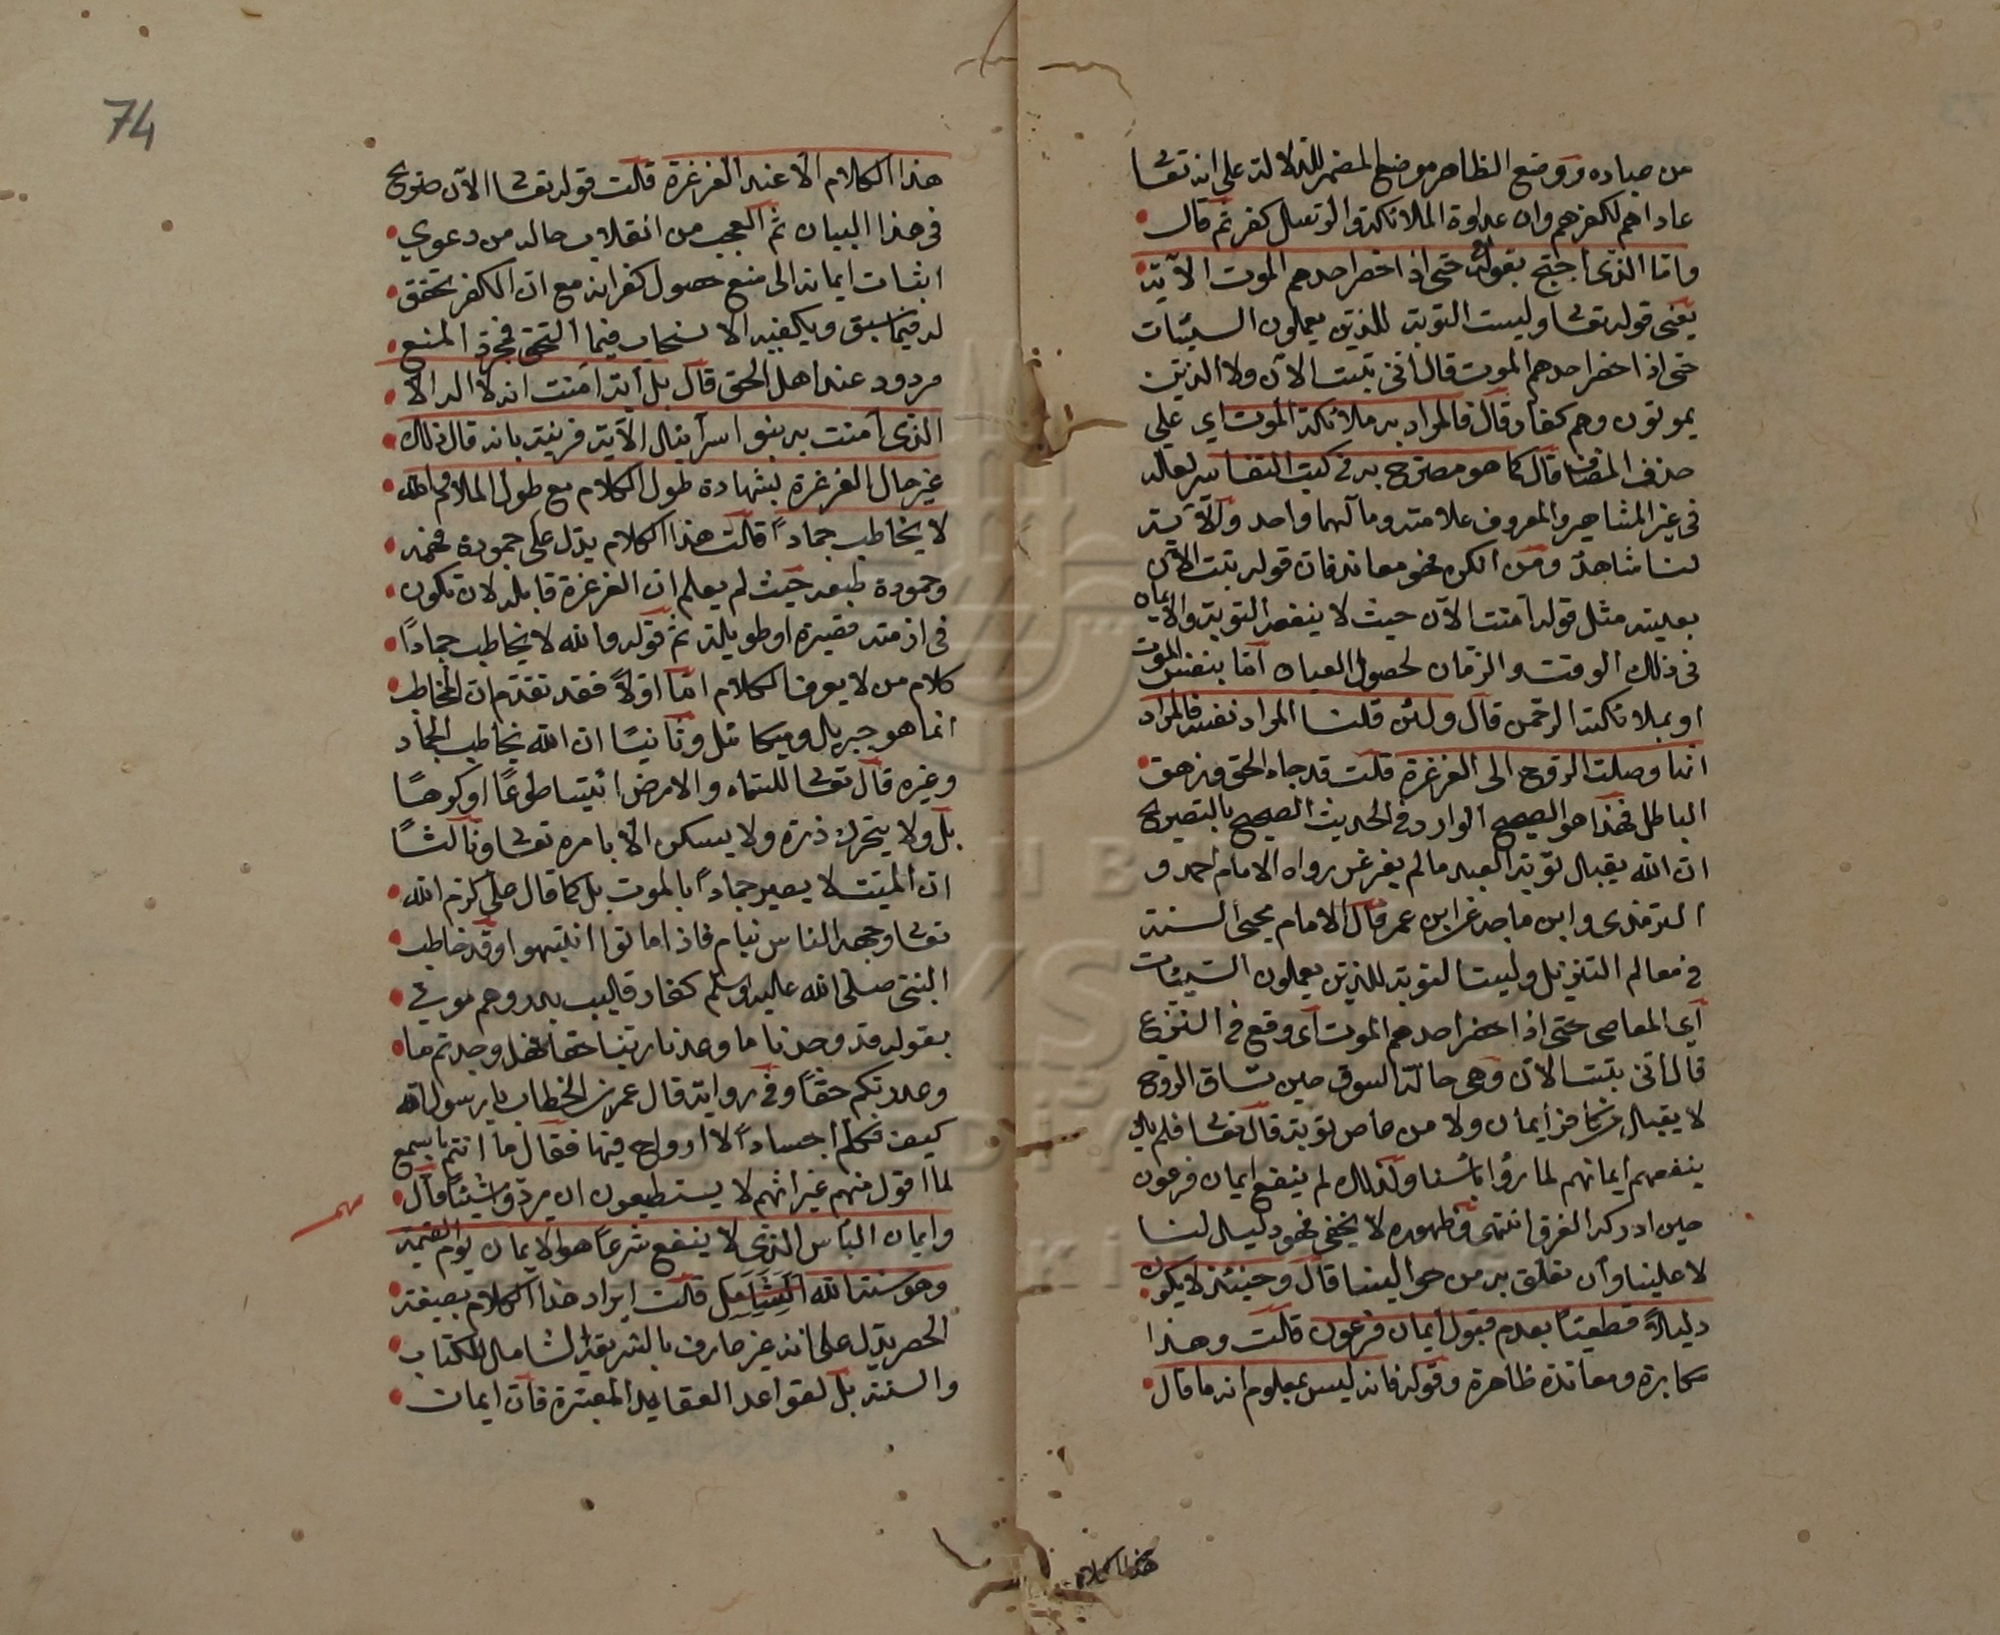 من عباده ووضع الظاهر موضع المضمر للدلالة على انه تعا
عاداهم لكفرهم وان عداوة الملائكة والرسل كفر ثم قال
واما الذى احتج بقوله تع حتى اذا حضر احدهم الموت الآية
يعنى قوله تعا وليست التوبة للذين يعملون السيئات
حتى اذا حضر احدهم الموت قال انى تبت الآن ولا الذين
يموتون وهم كفار قال فالمراد به ملائكة الموت اى على
حذف المضاف قال كما هو مصرح به فى كتب التفاسير لعله
فى غير المشاهير والمعروف علامته ومآلهما واحد والآية
لنا شاهد ومن انكره فهو معاند فان قوله تبت الآن
بعينه مثل قوله آمنت الآن حيث لا ينفعه التوبة والايمان
فى ذلك الوقت والزمان لحصول العيان اما بنفس الموت
او بملائكة الرحمن قال ولئن قلنا المراد نفسه فالمراد
اذا وصلت الروح الى الغرغرة قلت قد جاء الحق وزهق
الباطل فهذا هو الصحيح الوارد فى الحديث الصحيح بالتصريح
ان الله يقبل توبة العبد ما لم يغرغر رواه الامام احمد و
الترمذى وابن ماجه عن ابن عمر قال الامام محيى السنة
فى معالم التنزيل وليست التوبة للذين يعملون السيئات
اى المعاصى حتى اذا حضر احدهم الموت اى وقع فى النزع
قال انى تبت الآن وهى حالة السوق حين تساق الروح
لا يقبل من كافر ايمان ولا من عاص توبة قال تعا فلم يك
ينفعهم ايمانهم لما رأوا بأسنا ولذلك لم ينفع ايمان فرعون
حين ادركه الغرق انتهى وظهوره لا يخفى فهو دليل لنا
لا علينا وان تعلق به من حوالينا قال وحينئذ لا يكون
دليلاً قطعيًا بعدم قبول ايمان فرعون قلت وهذا
مكابرة ومعاندة ظاهرة وقوله فانه ليس بمعلوم انه ما قال
هذا الكلام
74
هذا الكلام الا عند الغرغرة قلت قوله تعا الآن صريح
فى هذا البيان ثم العجب من انقلاب حاله من دعوى
اثبات ايمانه الى منع حصول كفرانه مع ان الكفر تحقق
له فيما سبق ويكفيه الاستصحاب فيما التحق فمجرد المنع
مردود عند اهل الحق قال بل آية آمنت انه لا اله الا
الذى آمنت به بنوا اسرائيل الآية قرينة بانه قال ذلك
غير حال الغرغرة بشهادة طول الكلام مع طول الملام والله
لا يخاطب جمادًا قلت هذا الكلام يدل على جمودة فهمه
وجمودة طبعه حيث لم يعلم ان الغرغرة قابلة لان تكون
فى ازمنة قصيرة او طويلة ثم قوله والله لا يخاطب جمادًا
كلام من لا يعرف الكلام اما اولاً فقد تقدم ان المخاطب
انما هو جبريل وميكائيل وثانيًا ان الله يخاطب الجماد
وغيره قال تعا للسماء والارض ائتيا طوعًا او كرهًا
بل ولا يتحرك ذرة ولا يسكن الا بامره تعا وثالثًا
ان الميت لا يصير جمادًا بالموت بل كما قال على كرم الله
تعا وجهه الناس نيام فاذا ماتوا انتبهوا وقد خاطب
النبى صلى الله عليه وسلم كفار قليب بدر وهم موتى
بقوله قد وجدنا ما وعدنا ربنا حقا فهل وجدتم ما
وعد ربكم حقًا وفى رواية قال عمر بن الخطاب يا رسول الله
كيف تكلم اجسادًا لا ارواح فيها فقال ما انتم باسمع
لما اقول منهم غير انهم لا يستطيعون ان يردوا شيئًا قال
مهم
وايمان البأس الذى لا ينفع شرعًا هو الايمان يوم القيمة
وهو سنة الله قلت ايراد هذا الكلام بصيغة
الحصر يدل على انه غير عارف بالشريعة الشامل للكتاب
والسنة بل لقواعد العقايد المعتبرة فان ايمان